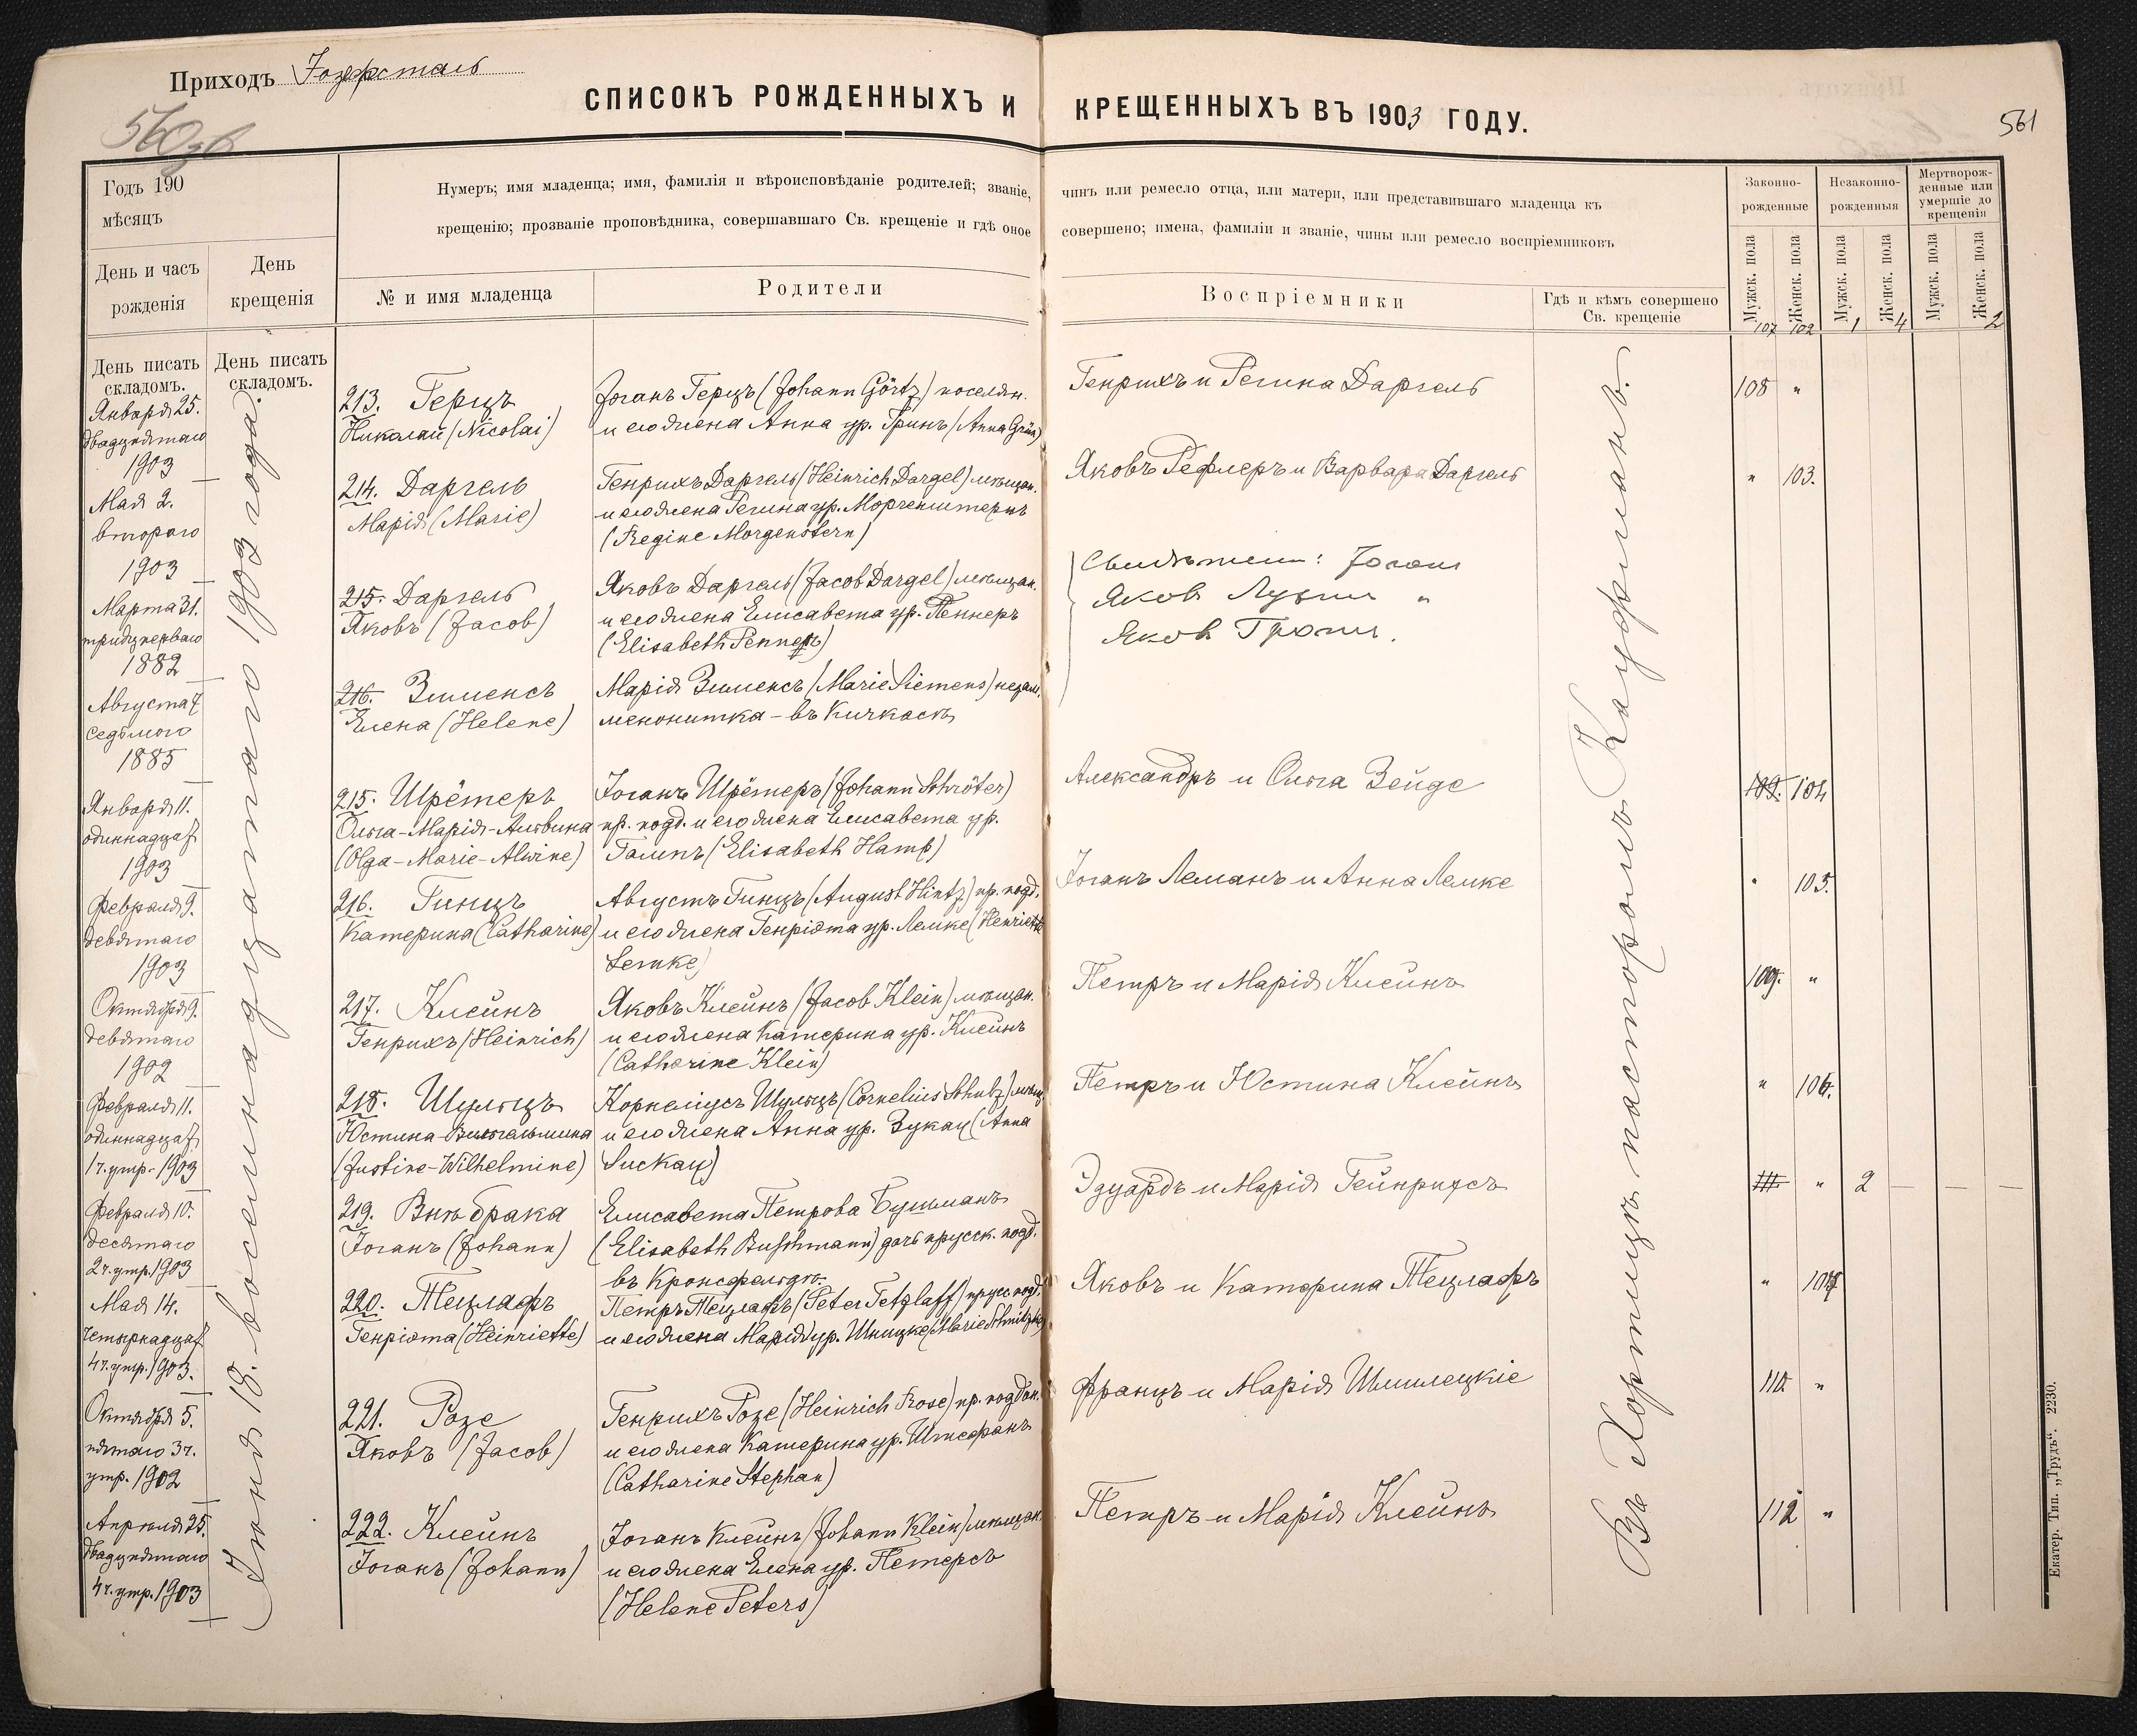 Приходъ Іозефсталь
560 об
561
СПИСОКЪ РОЖДЕННЫХЪ И КРЕЩЕННЫХЪ ВЪ 1903 ГОДУ.
Годъ 190
мѣсяцъ
День и часъ
рожденія
День
крещенія
Нумеръ; имя младенца; имя, фамилія и вѣроисповѣданіе родителей; званіе, чинъ или ремесло отца, или матери, или представившаго младенца къ
крещенію; прозваніе проповѣдника, совершавшаго Св. крещеніе и гдѣ оное совершено; имена, фамиліи и званіе, чины или ремесло воспріемниковъ
№ и имя младенца
Родители
Воспріемники
Гдѣ и кѣмъ совершено
Св. крещеніе
Законно-
рожденные
Незаконно-
рожденныя
Мертворож-
денные или
умершіе до
крещенія
Мужск. пола
Женск. пола
Мужск. пола
Женск. пола
Мужск. пола
Женск. пола
107 102 1 4 2
День писать
складомъ.
День писать
складомъ.
Іюня 18. восемнадцатаго 1903 года.
Въ Хортицѣ пасторомъ Кауфманъ.
Января 25.
двадцпятаго
1903
213. Герцъ
Николай (Nicolai)
Іоганъ Герцъ (Johann Görtz) поселян.
и его жена Анна ур. Гринъ (Anna Grün)
Генрихъ и Регина Даргель
108 "
Мая 2.
второго
1903
214. Даргель
Марія (Marie)
Генрихъ Даргель (Heinrich Dargel) мѣщан.
и его жена Регина ур. Моргенштернъ
(Regine Morgenstern)
Яковъ Рефлеръ и Варвара Даргель
" 103.
Марта 31.
тридцперваго
1882
215. Даргель
Яковъ (Jacob)
Яковъ Даргель (Jacob Dargel) мѣщан.
и его жена Елисавета ур. Пеннеръ
(Elisabeth Penner)
Августа 7
седьмого
1885
216. Зименсъ
Елена (Helene)
Марія Зименсъ (Marie Siemens) незам.
менонитка - въ Кичкасѣ
Января 11.
одиннадцат
1903
215. Шрётеръ
Ольга-Марія-Альвина
(Olga-Marie-Alwine)
Іоганъ Шрётеръ (Johann Schröter)
пр. подд. и его жена Елисавета ур.
Гампъ (Elisabeth Hamp)
Александръ и Ольга Зейде
109. 104
Февраля 9.
девятаго
1903
216. Гинцъ
Катерина (Catharine)
Августъ Гинцъ (August Hintz) пр. подд.
и его жена Генріэта ур. Лемке (Henriette
Lemke)
Іоганъ Леманъ и Анна Лемке
" 105.
Октября 9.
девятаго
1902
217. Клейнъ
Генрихъ (Heinrich)
Яковъ Клейнъ (Jacob Klein) мѣщан.
и его жена Катерина ур. Клейнъ
(Catharine Klein)
Петръ и Марія Клейнъ
109. "
Февраля 11.
одиннадцат
1 ч. утр. 1903
218. Шульцъ
Юстина-Вильгельмина
(Justine-Wilhelmine)
Корнеліусъ Шульцъ (Cornelius Schulz) мѣщ.
и его жена Анна ур. Зукау (Anna
Suckau)
Петръ и Юстина Клейнъ
" 106.
Февраля 10.
десятаго
2 ч. утр. 1903
219. Внѣ брака
Іоганъ (Johann)
Елисавета Петрова Бушманъ
(Elisabeth Buschmann) дочь прусск. подд.
въ Кронсфельдѣ.
Эдуардъ и Марія Гейнрихсъ
" 2
Мая 14.
четырнадцат
4 ч. утр. 1903.
220. Тецлафъ
Генріэта (Heinriette)
Петръ Тецлафъ (Peter Tetzlaff) прусс. подд.
и его жена Марія ур. Шницке (Marie Schnitzke)
Яковъ и Катерина Тецлафъ
" 107
Октября 5.
пятаго 3 ч.
утр. 1902
221. Розе
Яковъ (Jacob)
Генрихъ Розе (Heinrich Rose) пр. поддан.
и его жена Катерина ур. Штефанъ
(Catharine Stephan)
Францъ и Марія
110. "
Апрѣля 25.
двадцпятаго
4 ч. утр. 1903
222. Клейнъ
Іоганъ (Johann)
Іоганъ Клейнъ (Johann Klein) мѣщан.
и его жена Елена ур. Петерсъ
(Helene Peters)
Петръ и Марія Клейнъ
112 "
Екатер. Тип. „Трудъ". 2230.